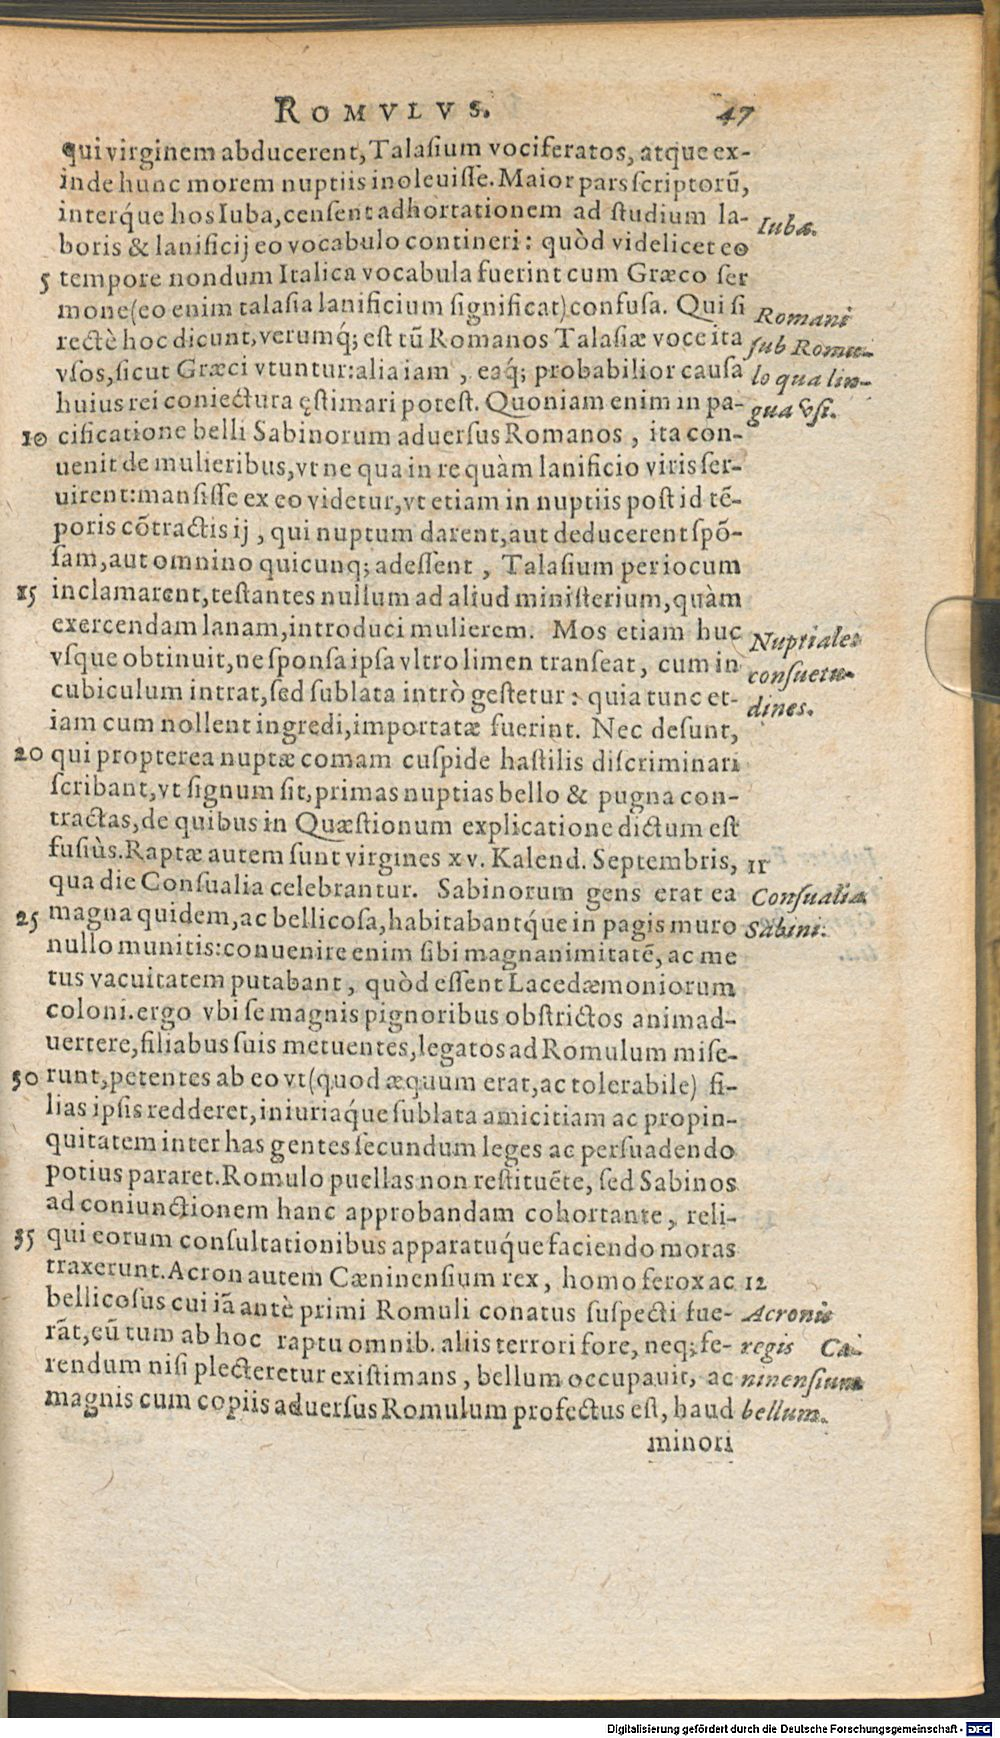 ROMVLVS. 47
qui virginem abducerent, Talasium vociferatos, atque ex-
inde hunc morem nuptiis inoleuisse. Maior pars scriptorũ,
interq́ue hos Iuba, censent adhortationem ad studium la-
Iubæ.
boris & lanificij eo vocabulo contineri: quòd videlicet eo
5 tempore nondum Italica vocabula fuerint cum Græco ser
mone (eo enim talasia lanificium significat) confusa. Qui si
Romani
rectè hoc dicunt, verumq́; est tũ Romanos Talasiæ voce ita
sub Romu-
vsos, sicut Græci vtuntur: alia iam, eaq́; probabilior causa
lo qua lin-
huius rei coniectura ęstimari potest. Quoniam enim in pa-
gua vsi.
10 cificatione belli Sabinorum aduersus Romanos, ita con-
uenit de mulieribus, vt ne qua in re quàm lanificio viris ser-
uirent: mansisse ex eo videtur, vt etiam in nuptiis post id tẽ-
poris cõtractis ij, qui nuptum darent, aut deducerent spõ-
sam, aut omnino quicunq; adessent, Talasium per iocum
15 inclamarent, testantes nullum ad aliud ministerium, quàm
exercendam lanam, introduci mulierem. Mos etiam huc
Nuptiales
vsque obtinuit, ne sponsa ipsa vltro limen transeat, cum in
consuetu-
cubiculum intrat, sed sublata intrò gestetur: quia tunc et-
dines.
iam cum nollent ingredi, importatæ fuerint. Nec desunt,
20 qui propterea nuptæ comam cuspide hastilis discriminari
scribant, vt signum sit, primas nuptias bello & pugna con-
tractas, de quibus in Quæstionum explicatione dictum est
fusiùs. Raptæ autem sunt virgines xv. Kalend. Septembris,
11
qua die Consualia celebrantur. Sabinorum gens erat ea
Consualia.
25 magna quidem, ac bellicosa, habitabantq́ue in pagis muro
Sabini.
nullo munitis: conuenire enim sibi magnanimitatẽ, ac me
tus vacuitatem putabant, quòd essent Lacedæmoniorum
coloni. ergo vbi se magnis pignoribus obstrictos animad-
uertere, filiabus suis metuentes, legatos ad Romulum mise-
30 runt, petentes ab eo vt (quod æquum erat, ac tolerabile) fi-
lias ipsis redderet, iniuriaq́ue sublata amicitiam ac propin-
quitatem inter has gentes secundum leges ac persuadendo
potius pararet. Romulo puellas non restituẽte, sed Sabinos
ad coniunctionem hanc approbandam cohortante, reli-
35 qui eorum consultationibus apparatuq́ue faciendo moras
traxerunt. Acron autem Cæninensium rex, homo ferox ac
12
bellicosus cui iã antè primi Romuli conatus suspecti fue-
Acronis
rãt, eũ tum ab hoc raptu omnib. aliis terrori fore, neq; fe-
regis Cæ-
rendum nisi plecteretur existimans, bellum occupauit, ac
ninensium
magnis cum copiis aduersus Romulum profectus est, haud
bellum.
minori
Digitalisierung gefördert durch die Deutsche Forschungsgemeinschaft - DFG